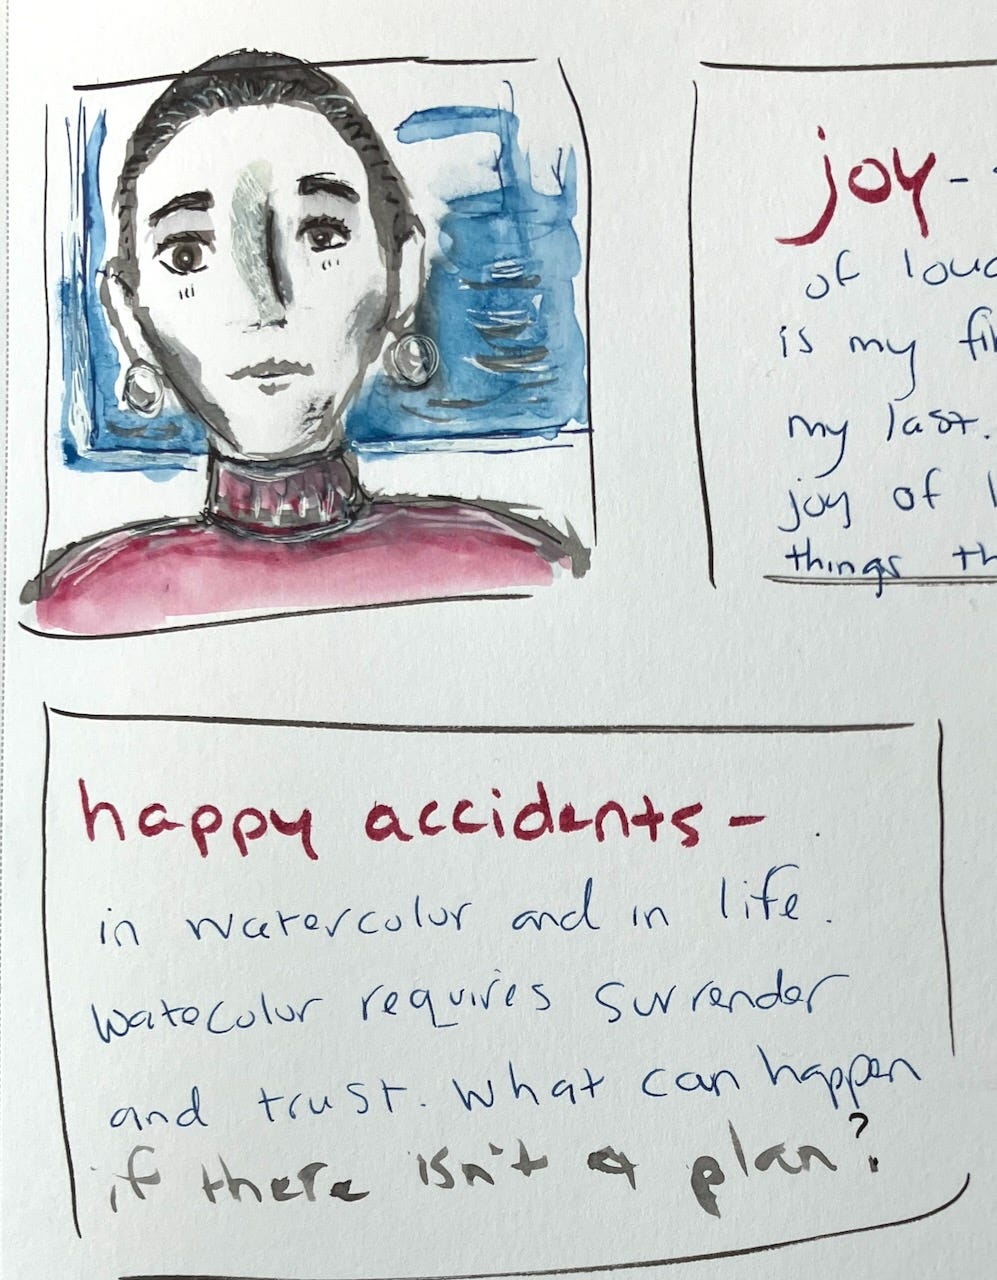 joy-
of
is my
my last.
joy of
things
happy accidents-
in watercolor and in life.
watecolor requires surrender
and trust. What can happen
if there isn't a plan?